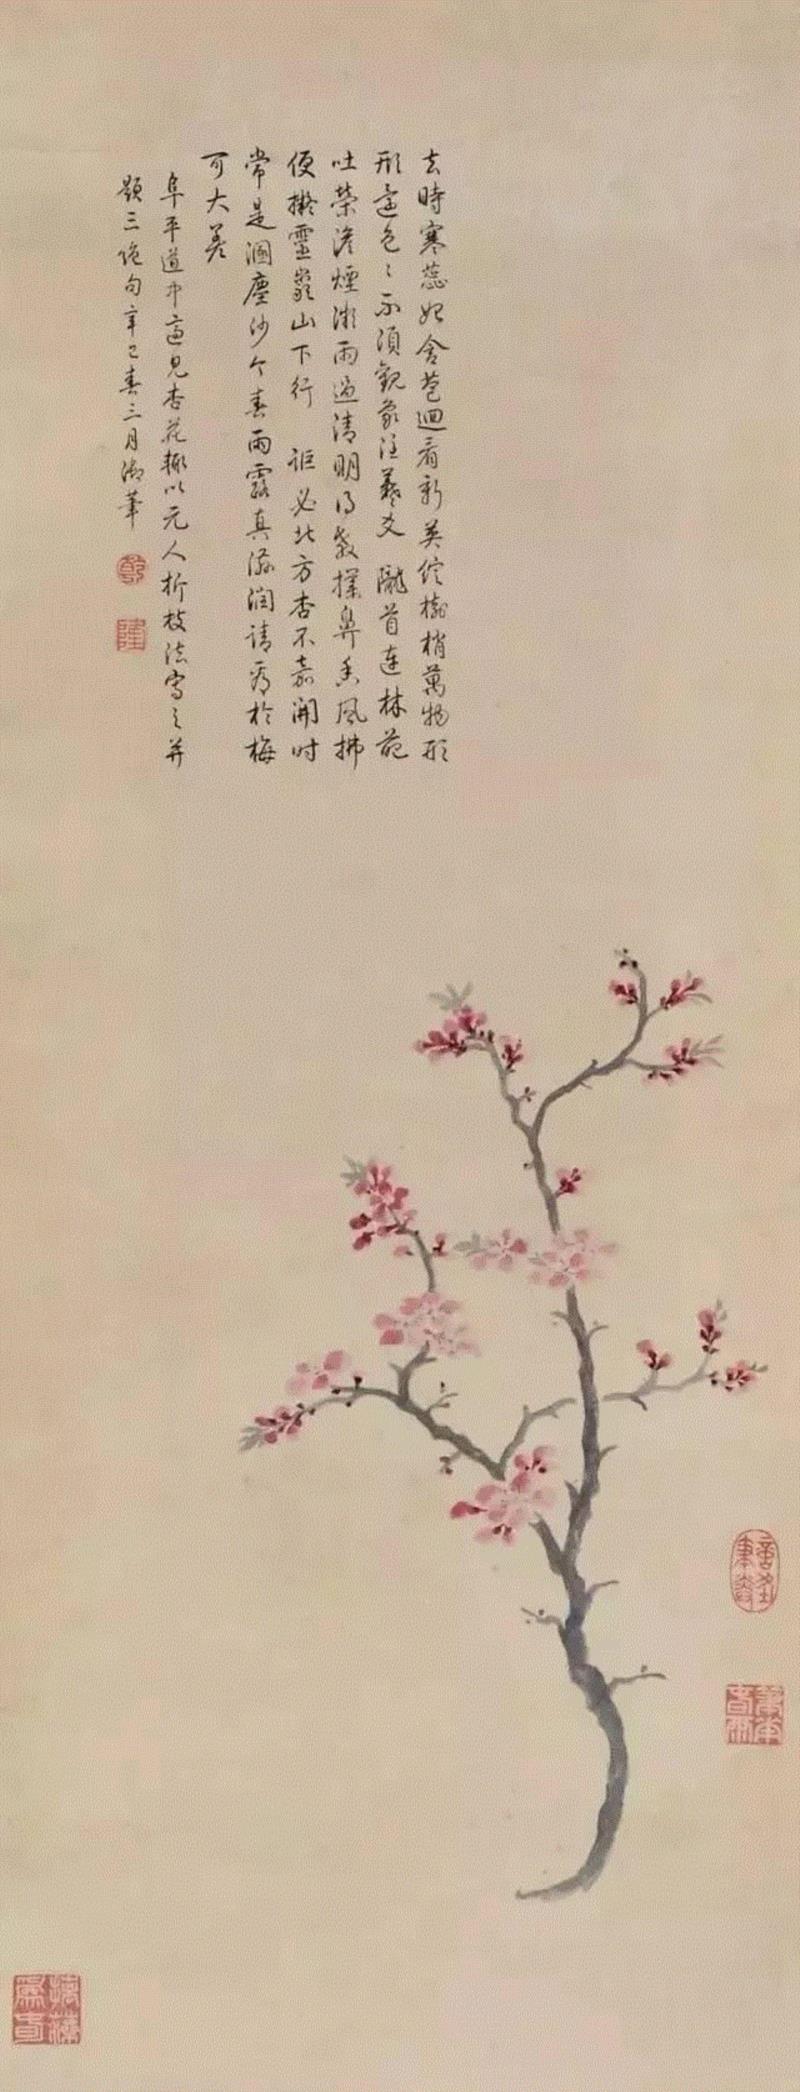 去時寒蕊始含苞迴看新英綻樹梢萬物形
形還色〻不須觀象注羲爻 隴首連林葩
吐榮澹煙微雨過清明乃教撲鼻香風拂
便擬靈巖山下行 詎必北方杏不嘉開時
常是涸塵沙今春雨露真滋潤請看於梅
可大差
阜平道中適見杏花輒以元人折枝法寫之并
題三絕句辛巳春三月御筆
乾
隆